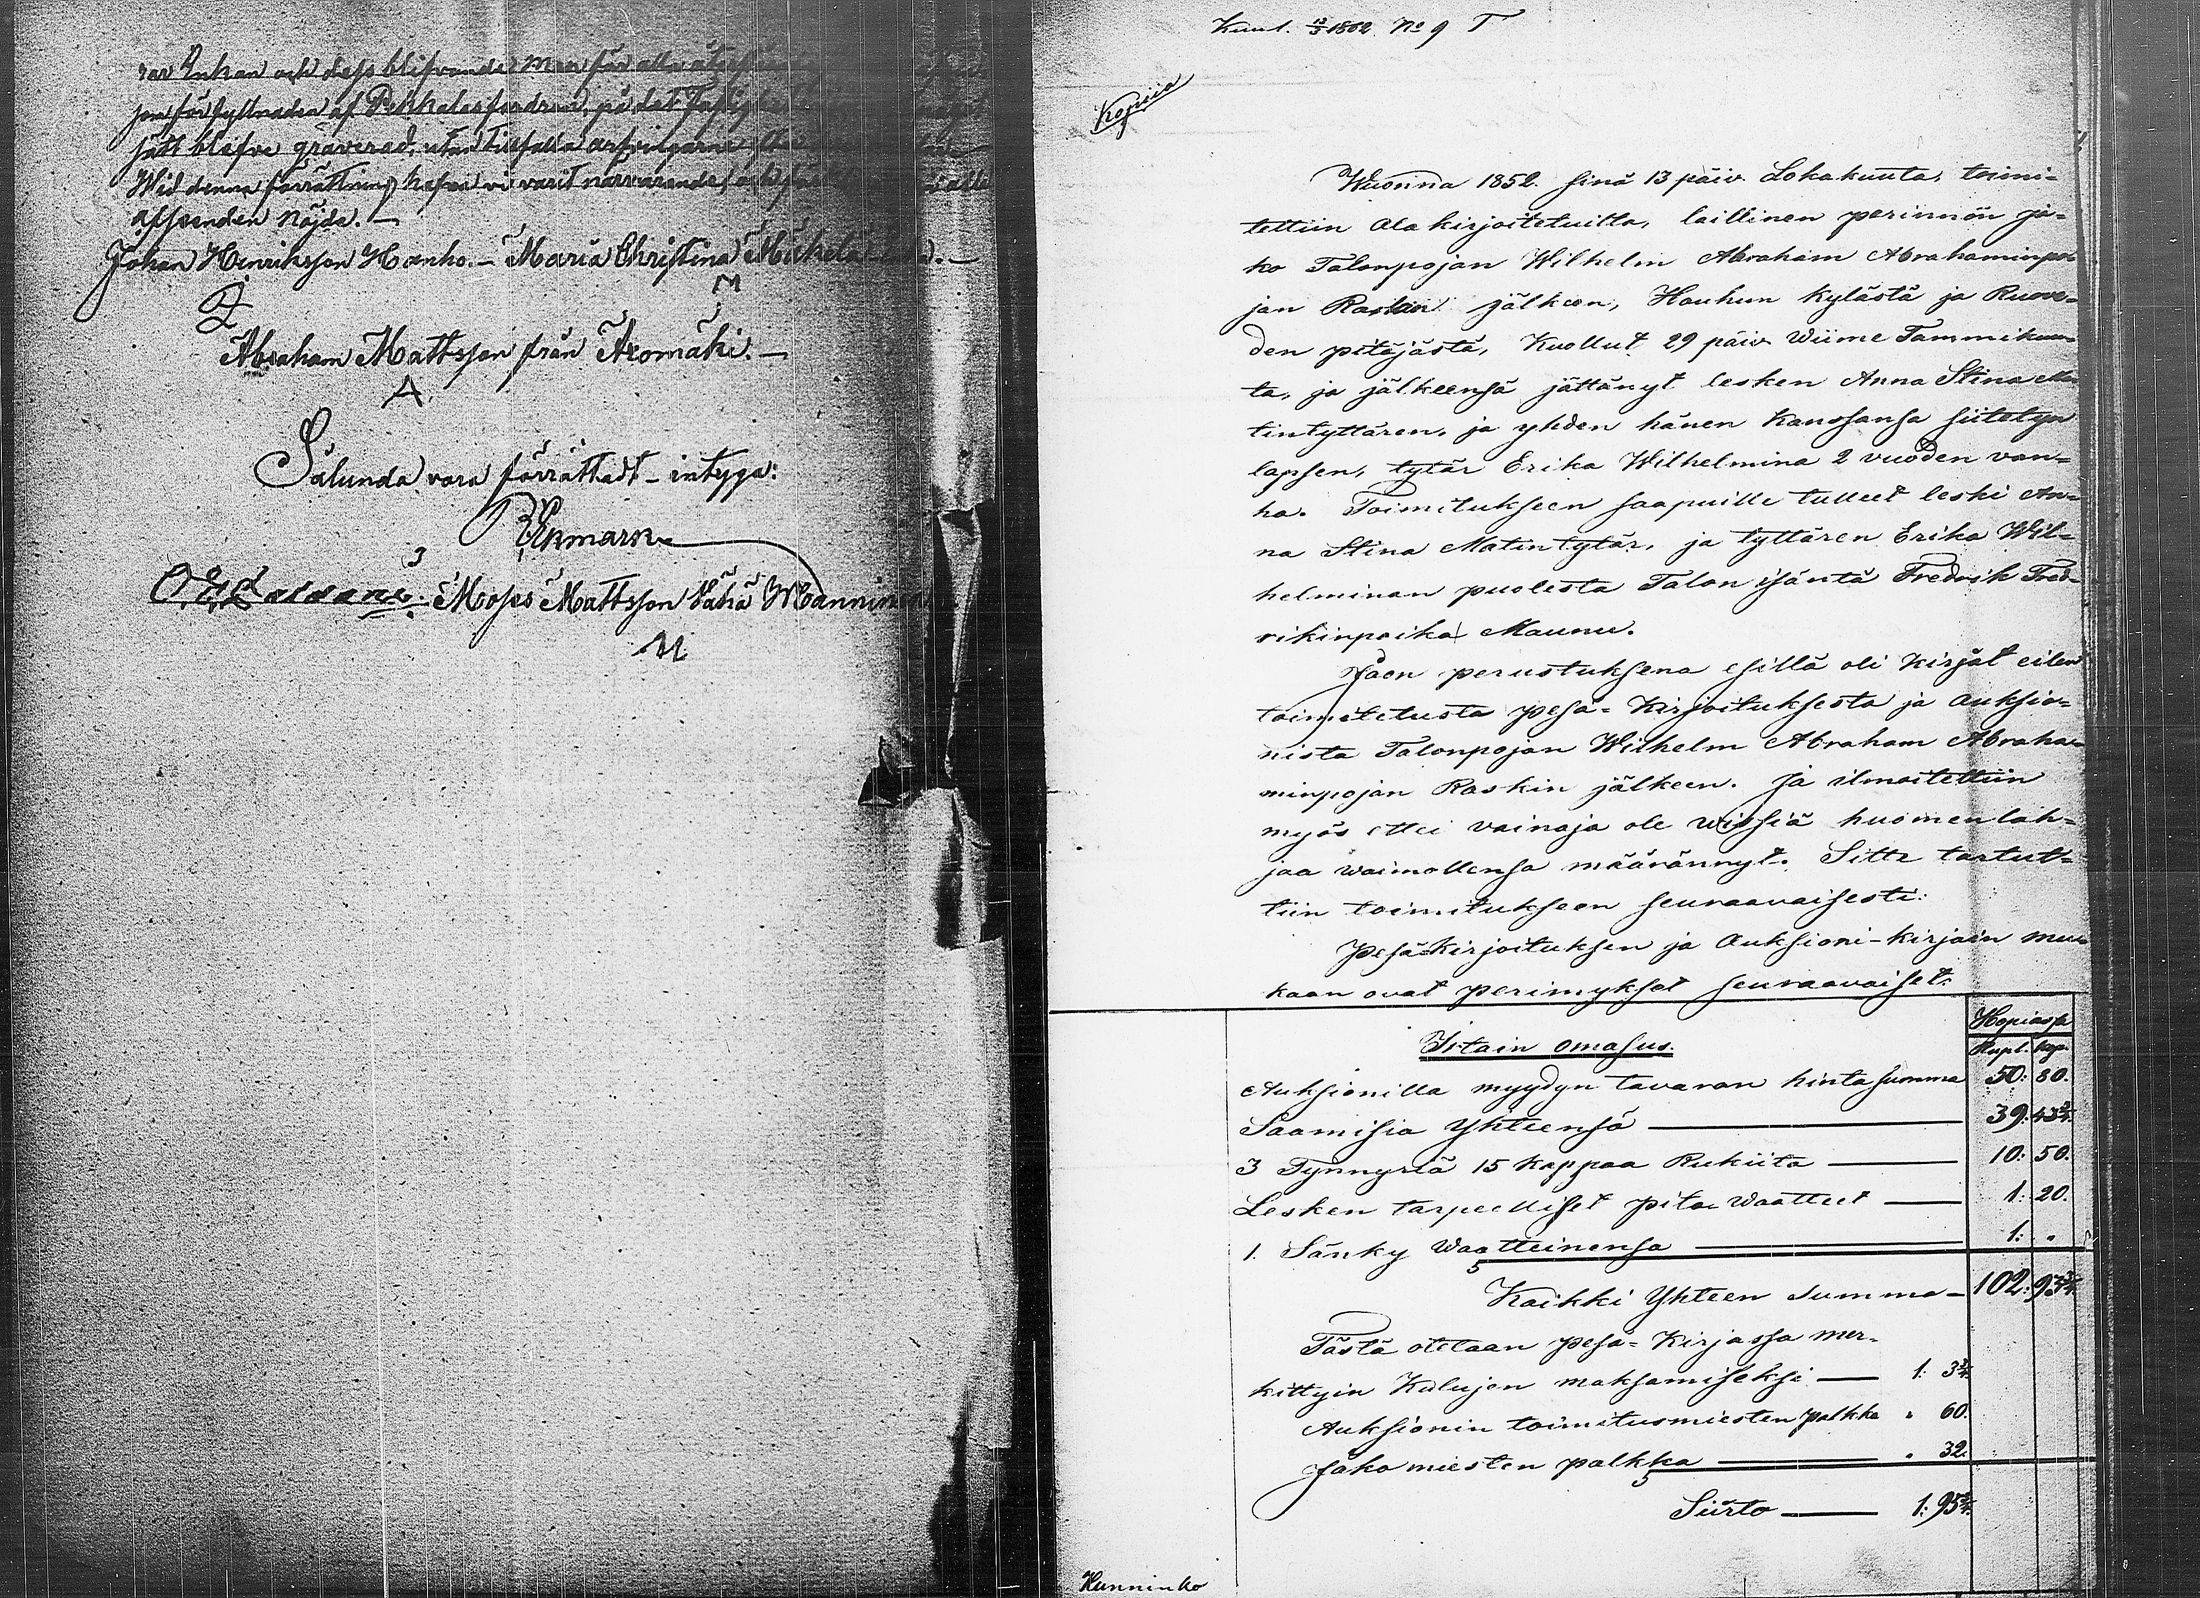 Enkan och dess blifvande man för alla
af Pekkalas fordran, på det
blifve graverad, utan tillfalla arfvingarne
Wid denna förrättning hafva vi varit närvarande,
nöjde. —
Johan Henriksson Hanho. — Maria Christina
M
Abraham Mattsson från Aromäki. —
A
Sålunda vara förrättadt — intyga:
Ekmark
Moses Mattsson Vähä
M
Kuul. 1862. No 9 T
Kopiia
Wuonna 1852. sinä 13 päiv. Lokakuuta, toimi=
tettiin ala kirjoitetuilta, laillinen perinnön ja=
ko Talonpojan Wilhelm Abraham Abrahaminpoi
jan Raskin jälkeen, Hauhun kylästä ja Ruove=
den pitäjästä, Kuollut 29 päiv. Wiime Tammikuu=
ta, ja jälkeensä jättänyt lesken Anna Stina Ma
tintyttären, ja yhden hänen kanssansa siitetyn
lapsen, tytär Erika Wilhelmina 2 vuoden van=
ha. Toimitukseen saapuille tulleet leski An=
na Stina Matintytär, ja tyttären Erika Wil=
helminan puolesta Talon isäntä Fredrik Fred=
rikinpoika Maunu.
Jaon perustuksena esillä oli kirjat eilen
toimitetusta pesä=kirjoituksesta ja auksio=
nista Talonpojan Wilhelm Abraham Abraha=
minpojan Raskin jälkeen. Ja ilmoitettiin
myös ettei vainaja ole wissiä huomenlah=
jaa waimollensa määrännyt. Sitte tartut=
tiin toimitukseen seuraavaisesti:
Pesä=kirjoituksen ja Auksioni-kirjain mu=
kaan ovat perimykset seuraavaiset.
Hopiassa
Irtain omasus. Rupl. kop.
Auksionilla myydyn tavaran hinta summa 50: 80.
Saamisia Yhteensä — 39: 43¾.
3 Tynnyriä 15 kappaa Rukiita — 10: 50.
Lesken tarpeelliset pito waatteet — 1: 20.
1. Sänky waatteinensa — 1: „
Kaikki Yhteen summa — 102: 93¾.
Tästä otetaan pesä=kirjassa mer=
kittyin Kulujen maksamiseksi — 1: 3¾.
Auksionin toimitusmiesten palkka „ 60.
Jako miesten palkka — „ 32.
Siirto — 1: 95¾.
Hunninko